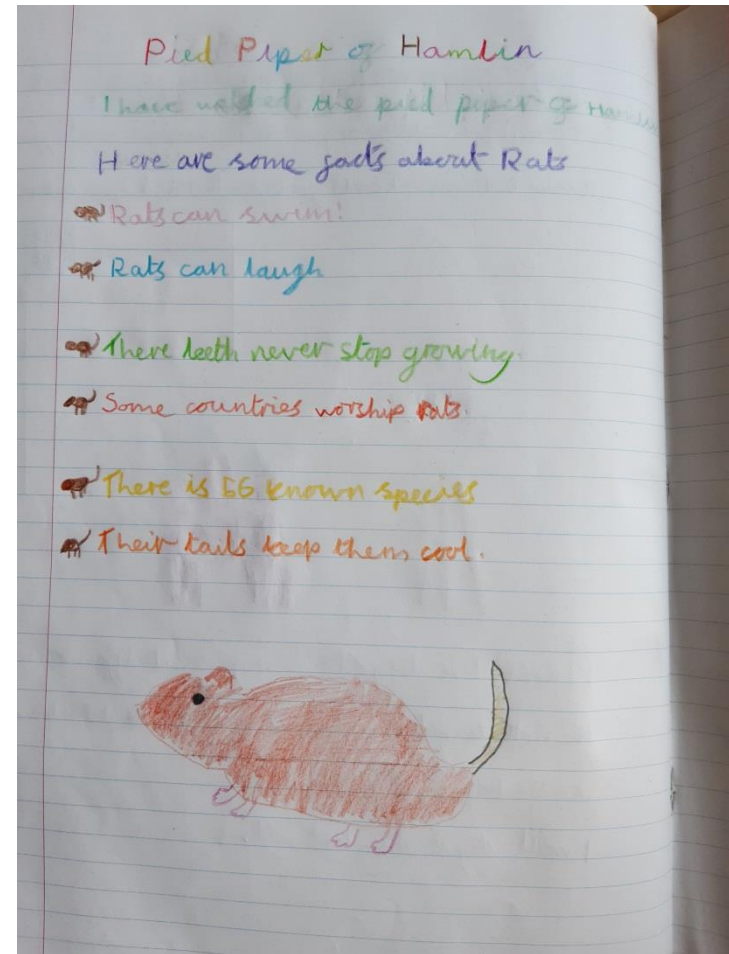 Pied Piper of Hamlin
I have the pied piper of
Here are some facts about Rats
Rats can swim!
Rats can laugh
There teeth never stop growing.
Some countries worship rats.
There is 56 known species
Their tails keep them cool.